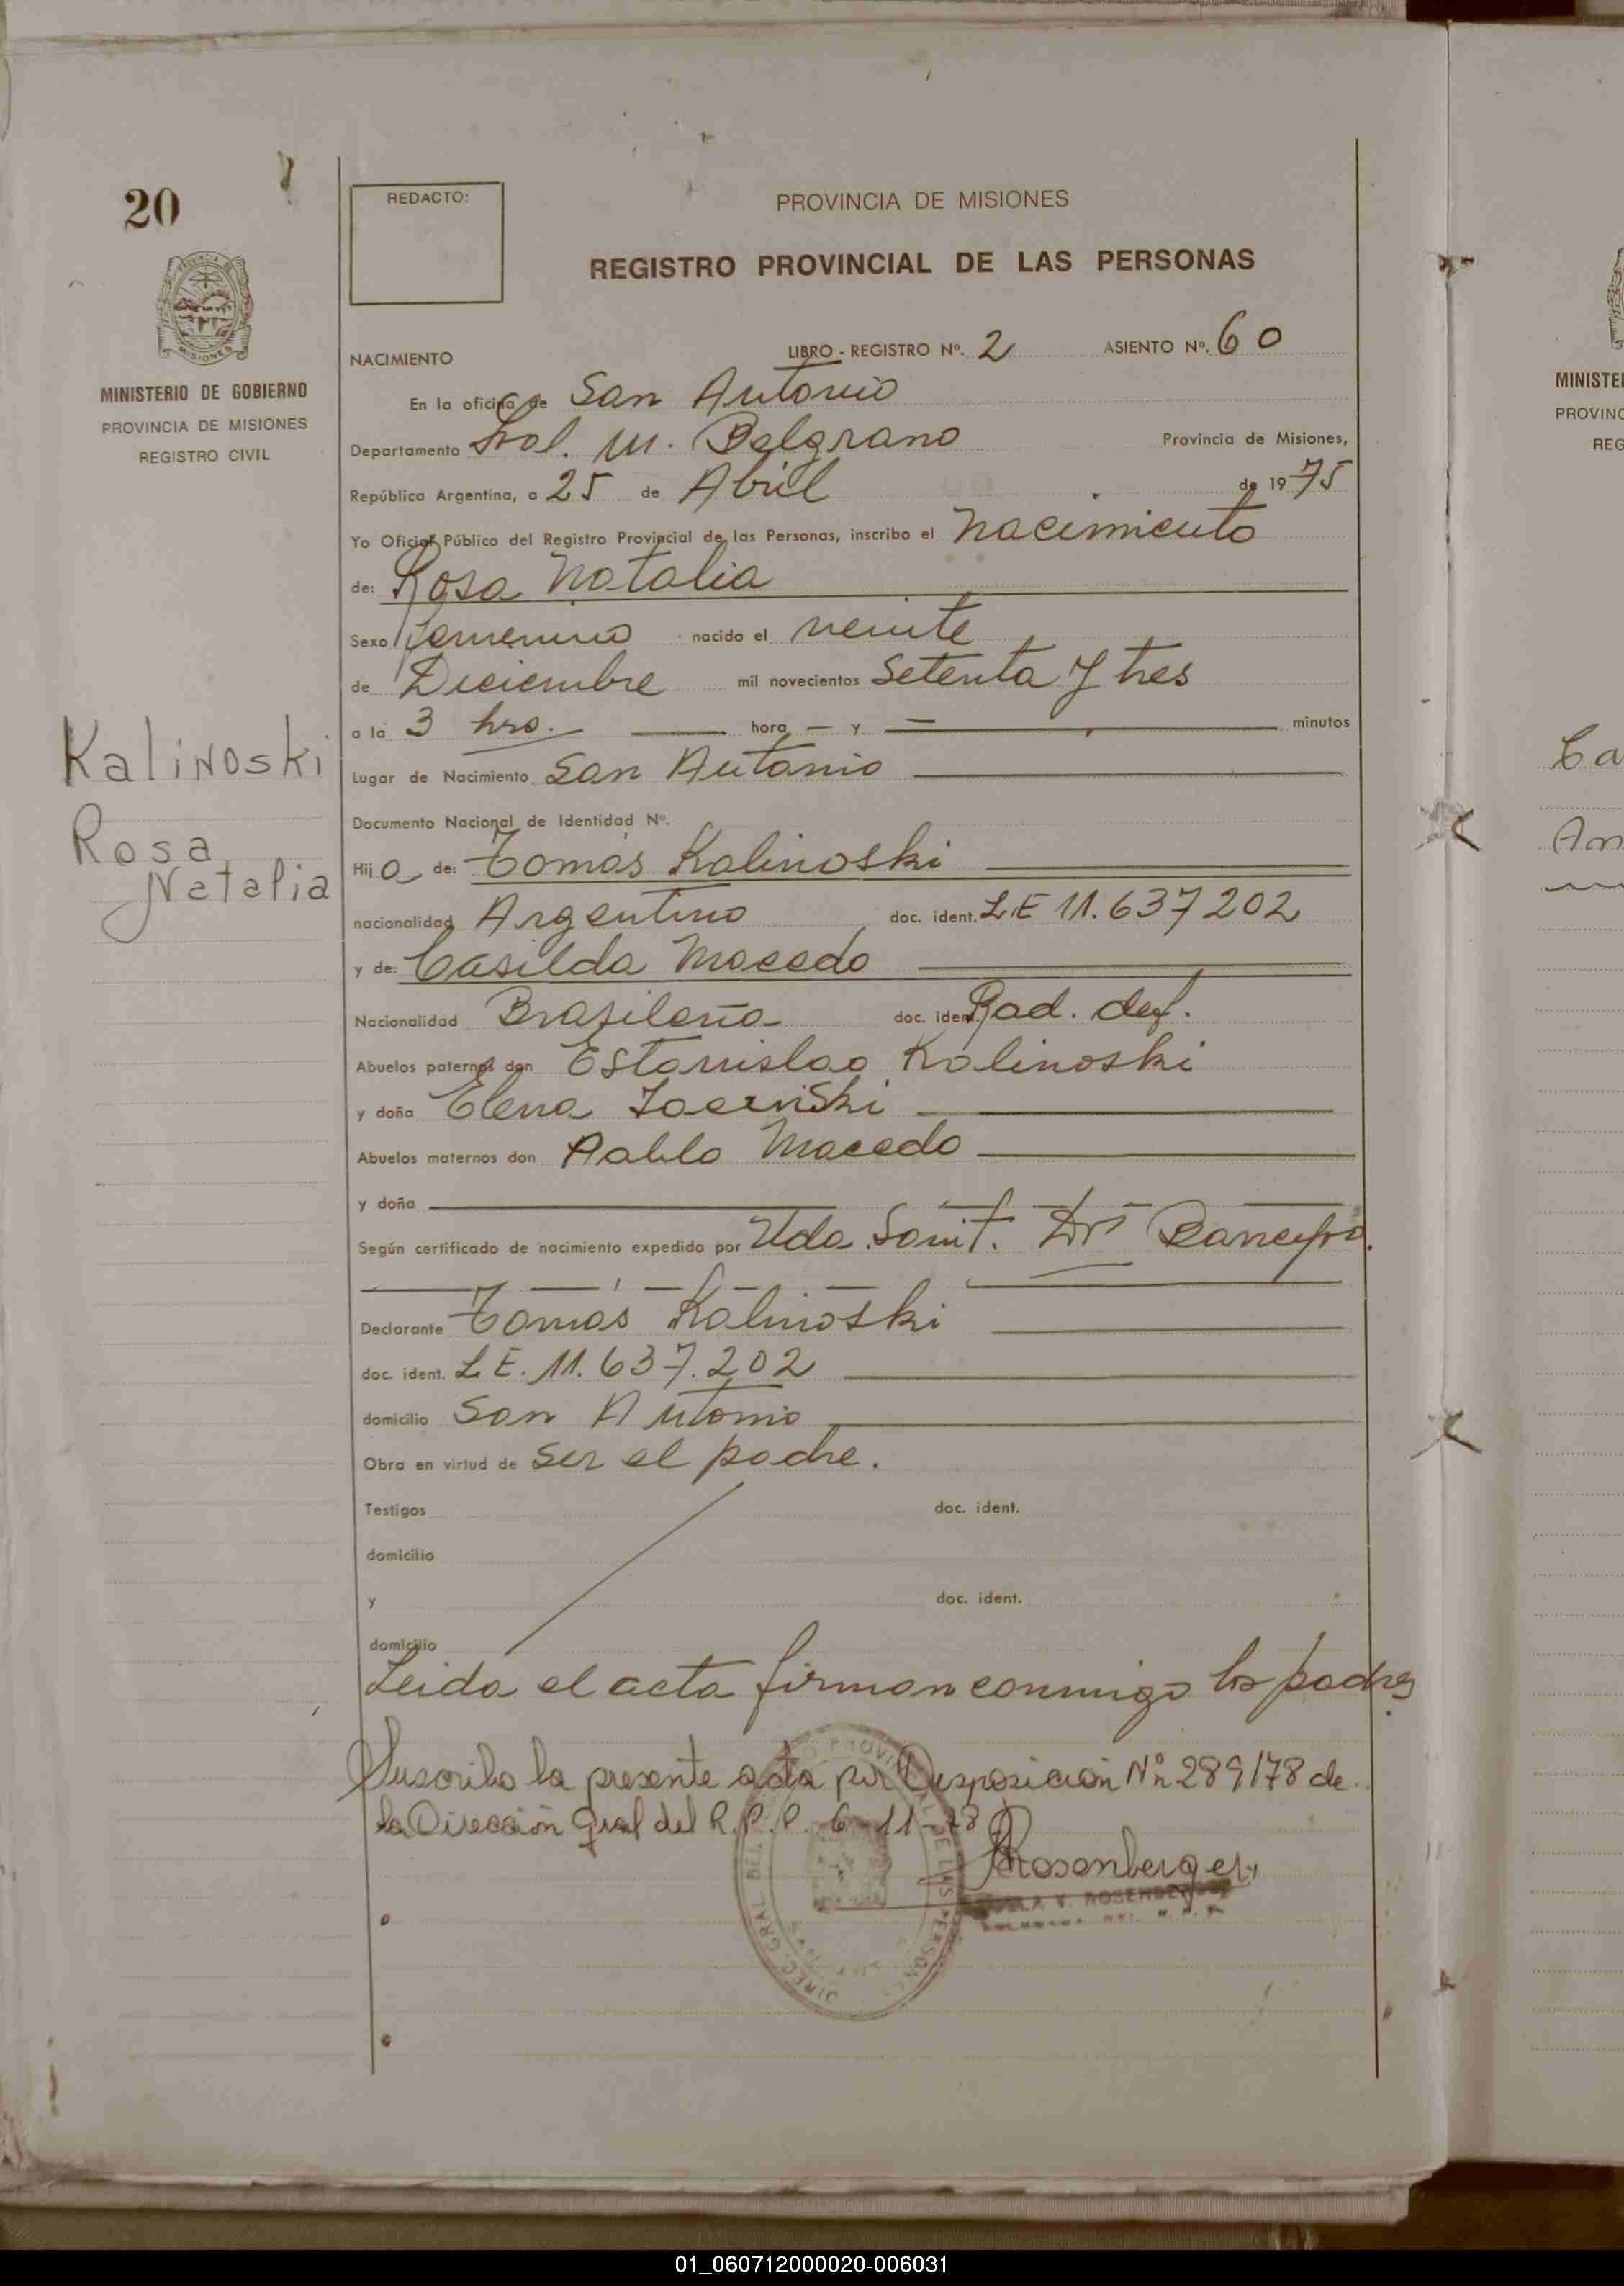 20
REDACTO:
PROVINCIA DE MISIONES
REGISTRO PROVINCIAL DE LAS PERSONAS
MINISTERIO DE GOBIERNO
PROVINCIA DE MISIONES
REGISTRO CIVIL
NACIMIENTO LIBRO - REGISTRO Nº. 2 ASIENTO Nº. 60
En la oficina de San Antonio
Departamento Gral. M. Belgrano Provincia de Misiones,
República Argentina, a 25 de Abril de 1975
Yo Oficial Público del Registro Provincial de las Personas, inscribo el nacimiento
de: Rosa Natalia
Sexo femenino nacido el veinte
de Diciembre mil novecientos Setenta y tres
a la 3 hrs. hora — y — minutos
Kalinoski
Rosa
Natalia
Lugar de Nacimiento San Antonio
Documento Nacional de Identidad Nº.
Hija de: Tomás Kalinoski
nacionalidad Argentino doc. ident. L.E 11.637202
y de: Casilda Macedo
Nacionalidad Brasileña doc. ident. Rad. def.
Abuelos paternos don Estanislao Kalinoski
y doña Elena
Abuelos maternos don Pablo Macedo
y doña
Según certificado de nacimiento expedido por Uda. Sanit.
Declarante Tomás Kalinoski
doc. ident. L.E. 11.637.202
domicilio San Antonio
Obra en virtud de ser el padre.
Testigos doc. ident.
domicilio
y doc. ident.
domicilio
Leida el acta firman conmigo los padres
Suscribo la presente acta por Disposición Nº 289/78 de
la Dirección Gral del R.P.P. 6-11-78
Rosenberger
V. ROSENBERGER
MINISTE
PROVINC
REG
Ca
An
01_060712000020-006031